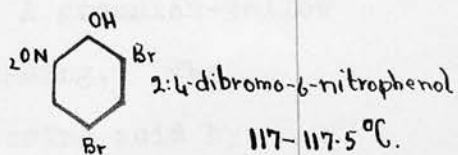 OH
₂ON
Br
Br
2:4-dibromo-6-nitrophenol
117-117·5 ºC.